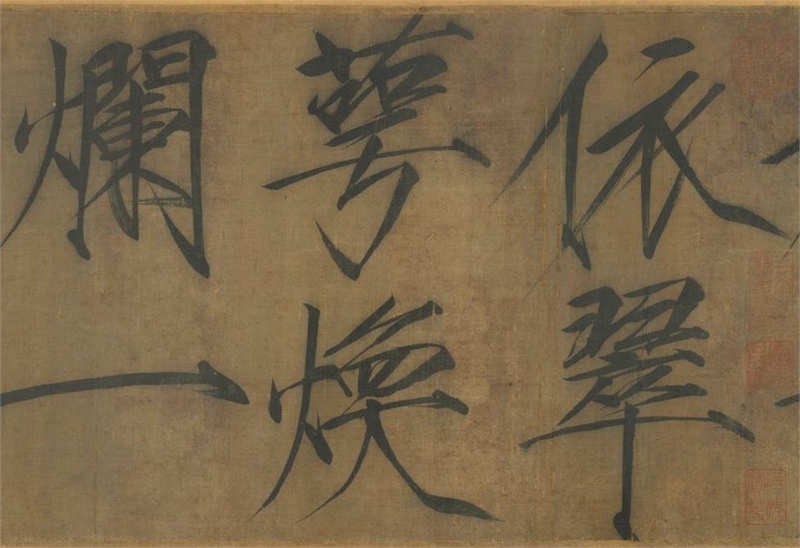 依翠
萼煥
爛一